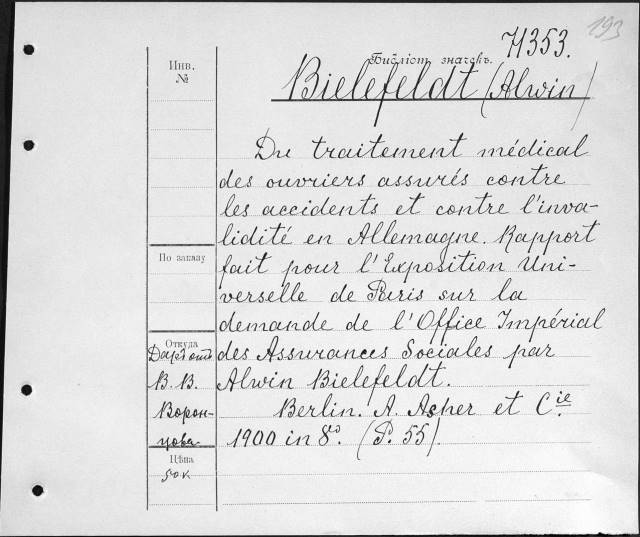 193
71353.
Библіот. значекъ.
Bielefeldt (Alwin)
Инв.
№
Du traitement médical
des ouvriers assurés contre
les accidents et contre l'inva-
lidité en Allemagne. Rapport
По заказу
fait pour l'Exposition Uni-
verselle de Paris sur la
demande de l'Office Impérial
des Assurances Sociales par
Alwin Bielefeldt.
Berlin. A. Asher et Cie.
1900 in 8º. (P. 55).
Откуда
Даръ отъ
В. В.
Ворон-
цова
Цѣна
50 к.